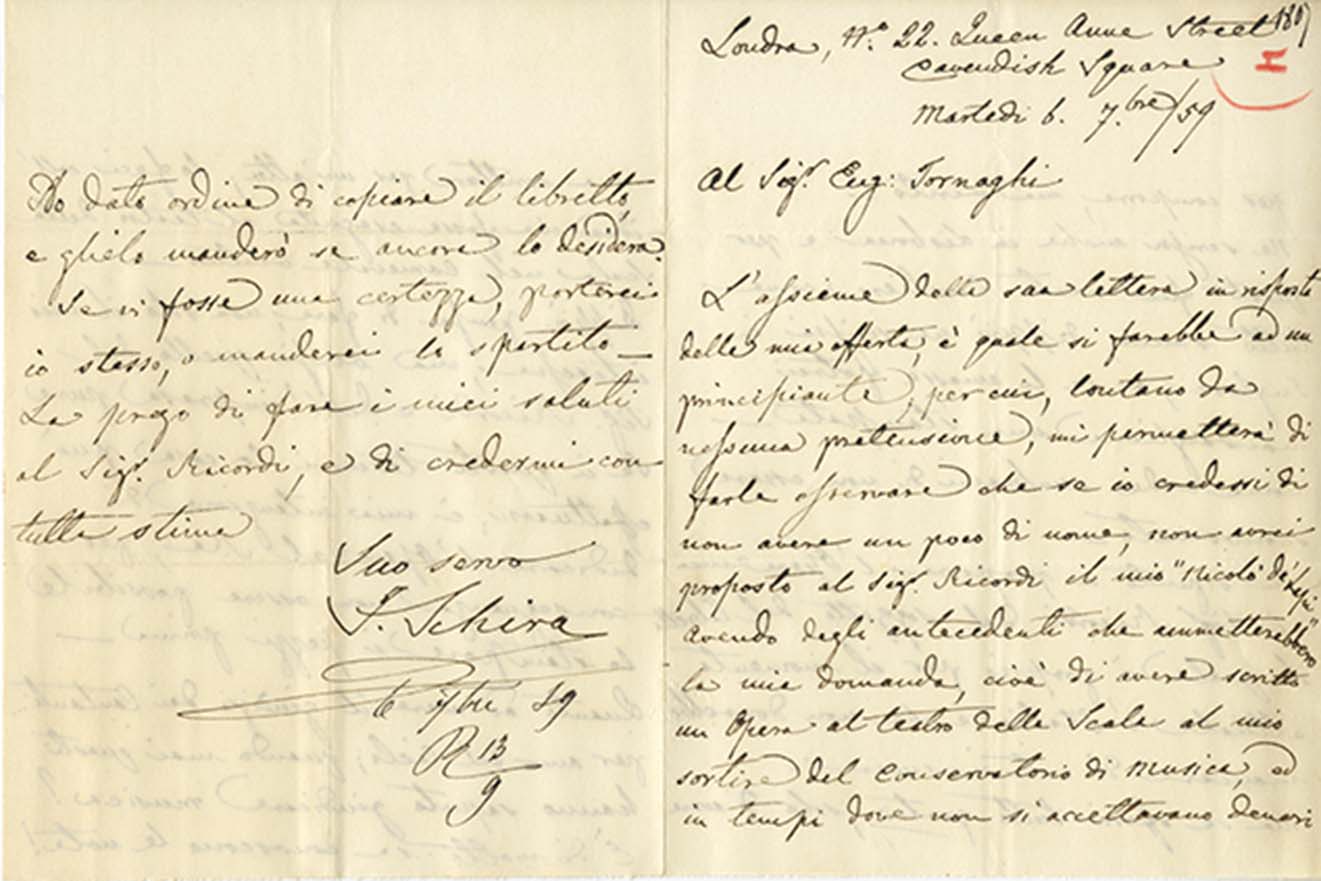 Londra, N.o 22. Queen Anne Street
Cavendish Square
Martedi 6. 7.bre/59
Al Sig.r Eug: Tornaghi
L'assieme della sua lettera in risposta
della mia offerta, è quale si farebbe ad un
principiante, per cui, lontano da
nessuna pretensione, mi permetterà di
farle osservare che se io credessi di
non avere un poco di nome, non avrei
proposto al Sig.r Ricordi il mio "Nicolò de' Lapi"
avendo degli antecedenti che ammetterebbero
la mia domanda, cioè di avere scritto
un Opera al teatro della Scala al mio
sortire del Conservatorio di Musica, ed
in tempi dove non si accettavano denari
Ho dato ordine di copiare il libretto,
e glielo manderò se ancora lo desidera.
Se vi fosse una certezza, porterei
io stesso, o manderei lo spartito —
La prego di fare i miei saluti
al Sig.r Ricordi, e di credermi con
tutta stima
Suo servo
F. Schira
6 7bre 59
R 13
9